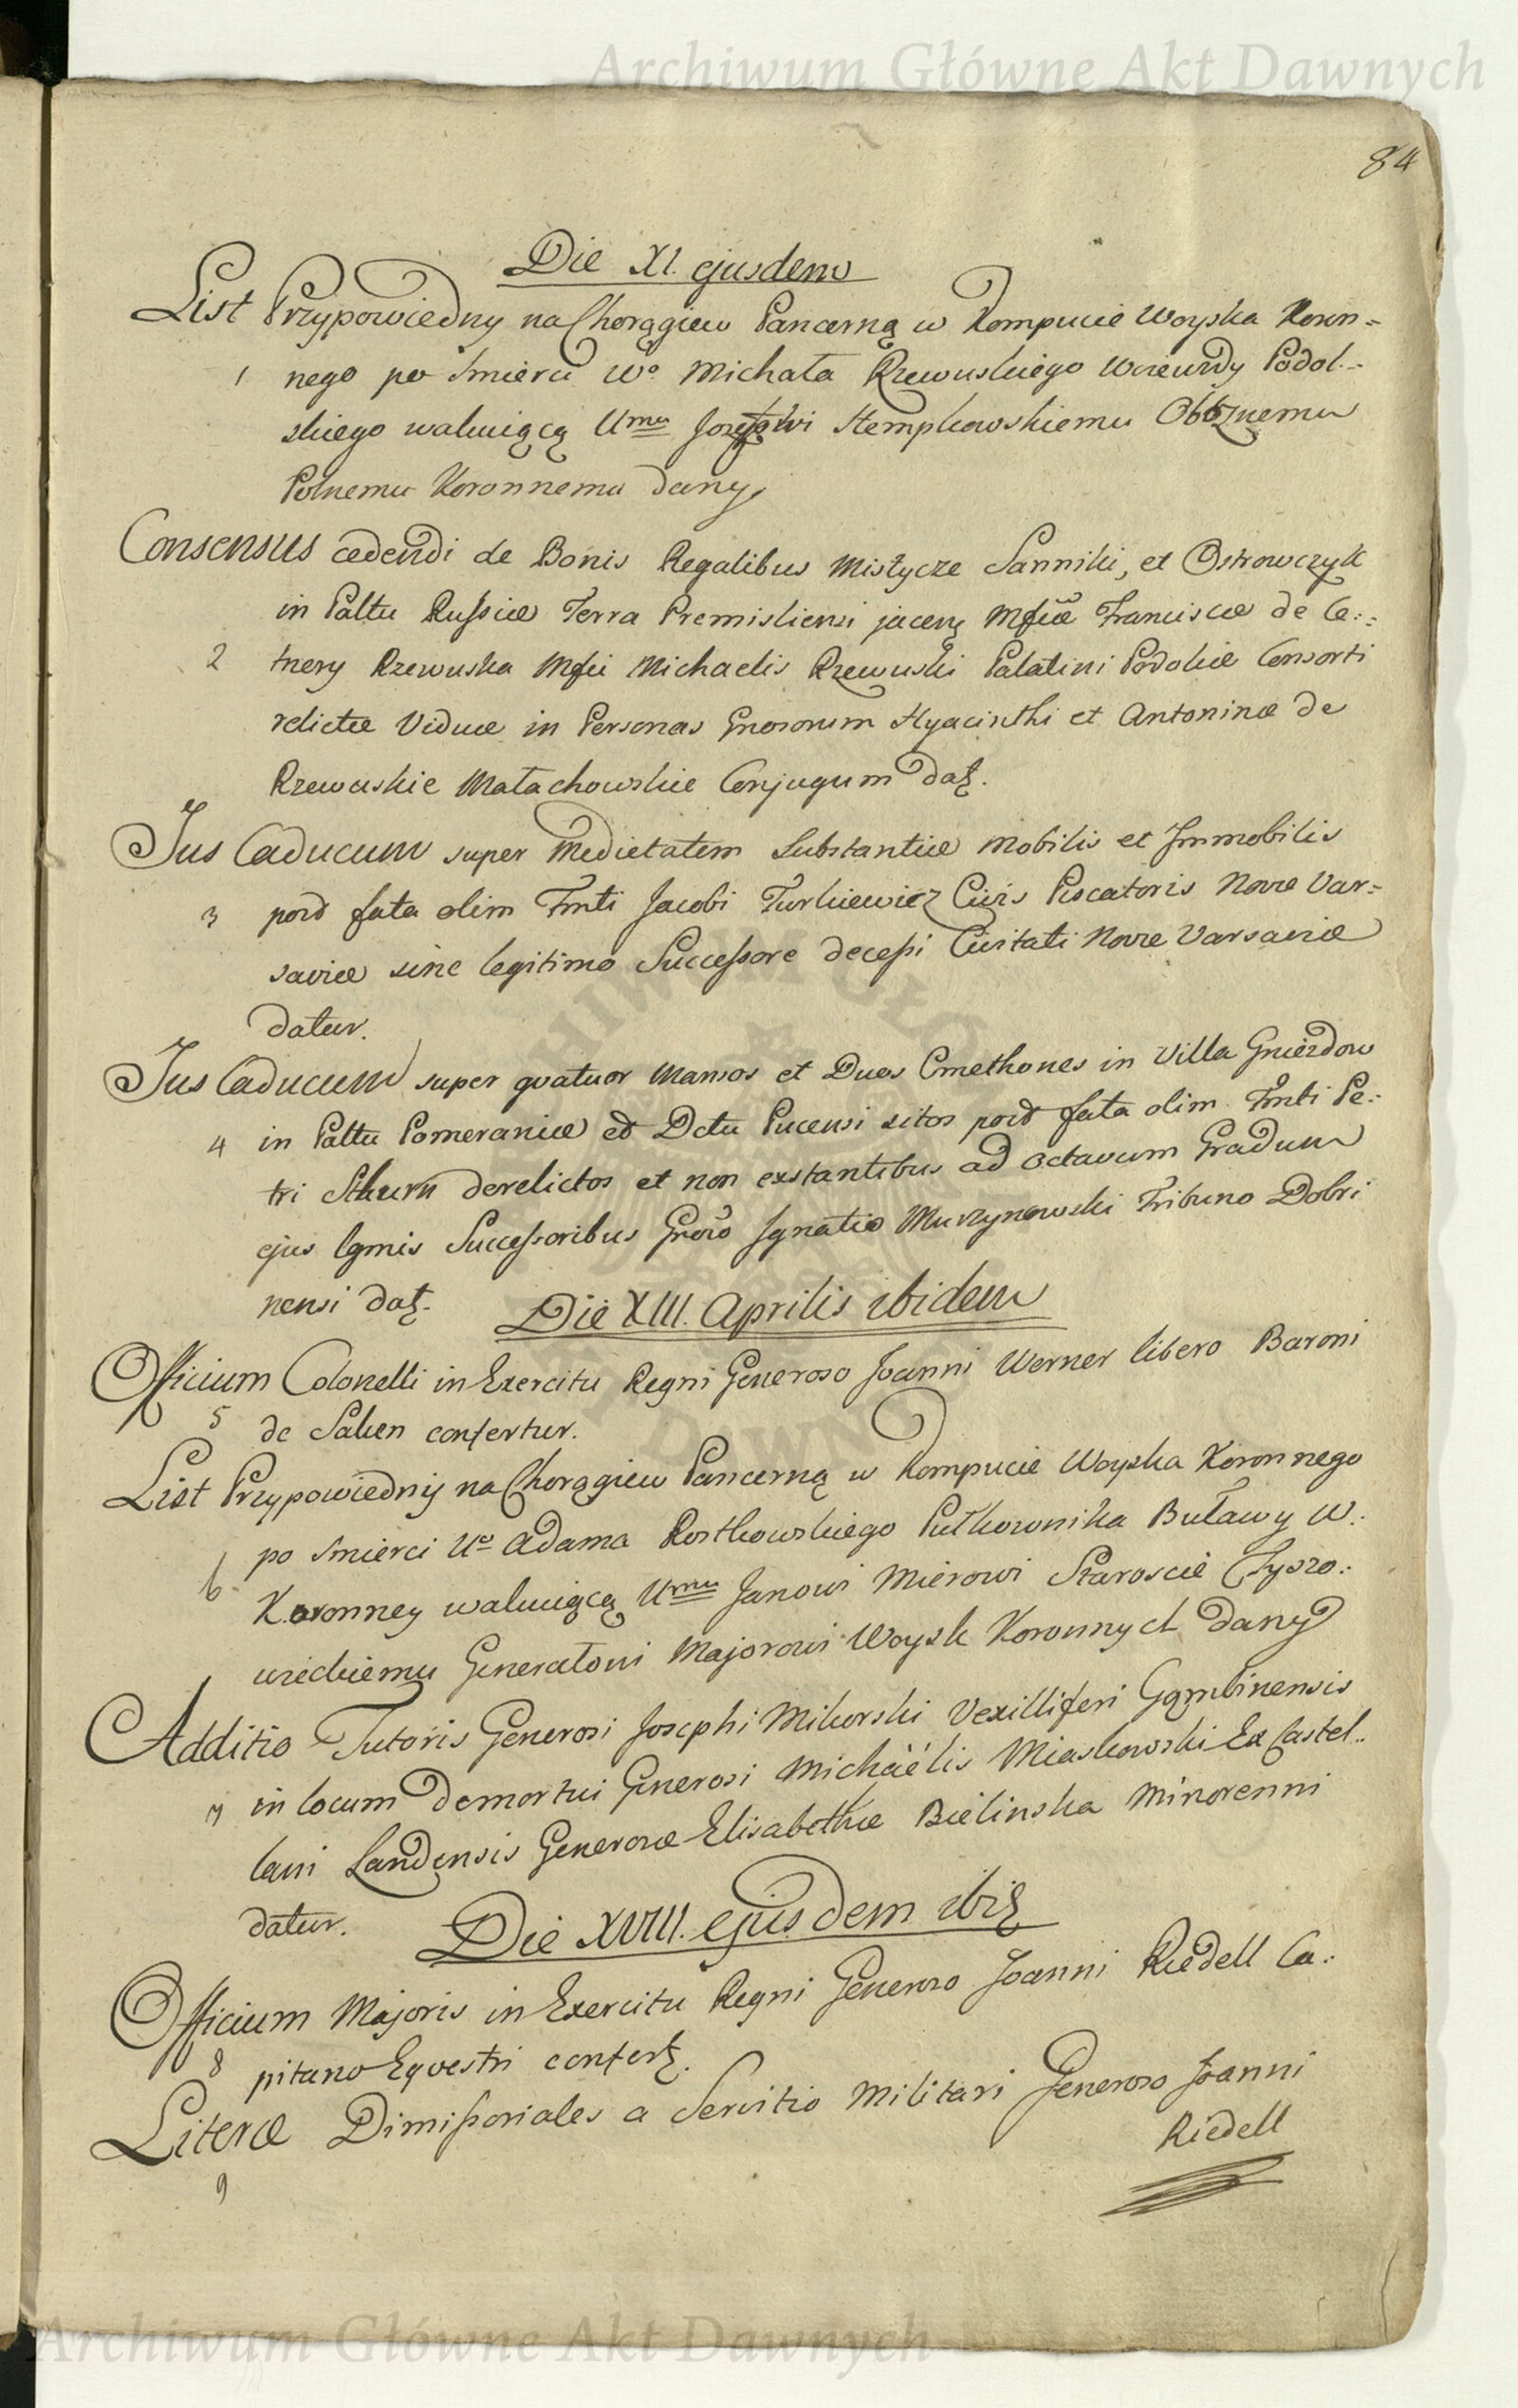 Archiwum Główne Akt Dawnych
84
Die XI. ejusdem
List Przypowiedny na Chorągiew Pancerną w Kompucie Woyska Koron=
1 nego po Smierci Wo Michała Rzewuskiego Wdewdy Podol.-
skiego wakuiącą Umu Jozefowi Stempkowskiemu Oboznemu
Polnemu Koronnemu dany
Consensus cedendi de Bonis Regalibus Mistycze Sanniki, et Ostrowczyk
in Palttu Russiæ Terra Premisliensi jacen. Mfcæ Franciscæ de Ce.:
2 tnery Rzewuska Mfci Michaelis Rzewuski Palatini Podoliæ Consorti
relictæ Viduæ in Personas Gnosorum Hyacinthi et Antoninæ de
Rzewuskie Małachowskie Conjugum dat.
Jus Caducum super Medietatem Substantiæ Mobilis et Immobilis
3 post fata olim Fmti Jacobi Turkiewicz Civis Piscatoris Novæ Var=
saviæ sine legitimo Successore decessi Civitati Novæ Varsaviæ
datur.
Jus Caducum super qvatuor Mansos et Duos Cmethones in Villa Gniezdow
4 in Palttu Pomeraniæ et Dctu Pucensi sitos post fata olim Fmti Pe.:
tri Sthurn derelictos et non exstantibus ad octavum Gradum
ejus lgmis Successoribus Gnoso Ignatio Murzynowski Tribuno Dobri
nensi dat.
Die XIII. Aprilis ibidem
Officium Colonelli in Exercitu Regni Generoso Joanni Werner libero Baroni
5 de Saken confertur.
List Przypowiedny na Chorągiew Pancerną w Kompucie Woyska Koronnego
po Smierci Uo Adama Rostkowskiego Pułkownika Buławy W.
6 Koronney wakuiącą Umu Janowi Mierowi Staroscie Czyszo.:
wieckiemu Generałowi Majorowi Woysk Koronnych dany
Additio Tutoris Generosi Josephi Mikorski Vexilliferi Gąmbinensis
7 in locum demortui Generosi Michaelis Miaskowski Ex Castel..
lani Landensis Generosæ Elisabethæ Bielinska Minorenni
datur.
Die XVIII. ejusdem ibid.
Officium Majoris in Exercitu Regni Generoso Joanni Riedell Ca.:
8 pitano Eqvestri confert.
Literæ Dimissoriales a Servitio Militari Generoso Joanni
Riedell
9
Archiwum Główne Akt Dawnych